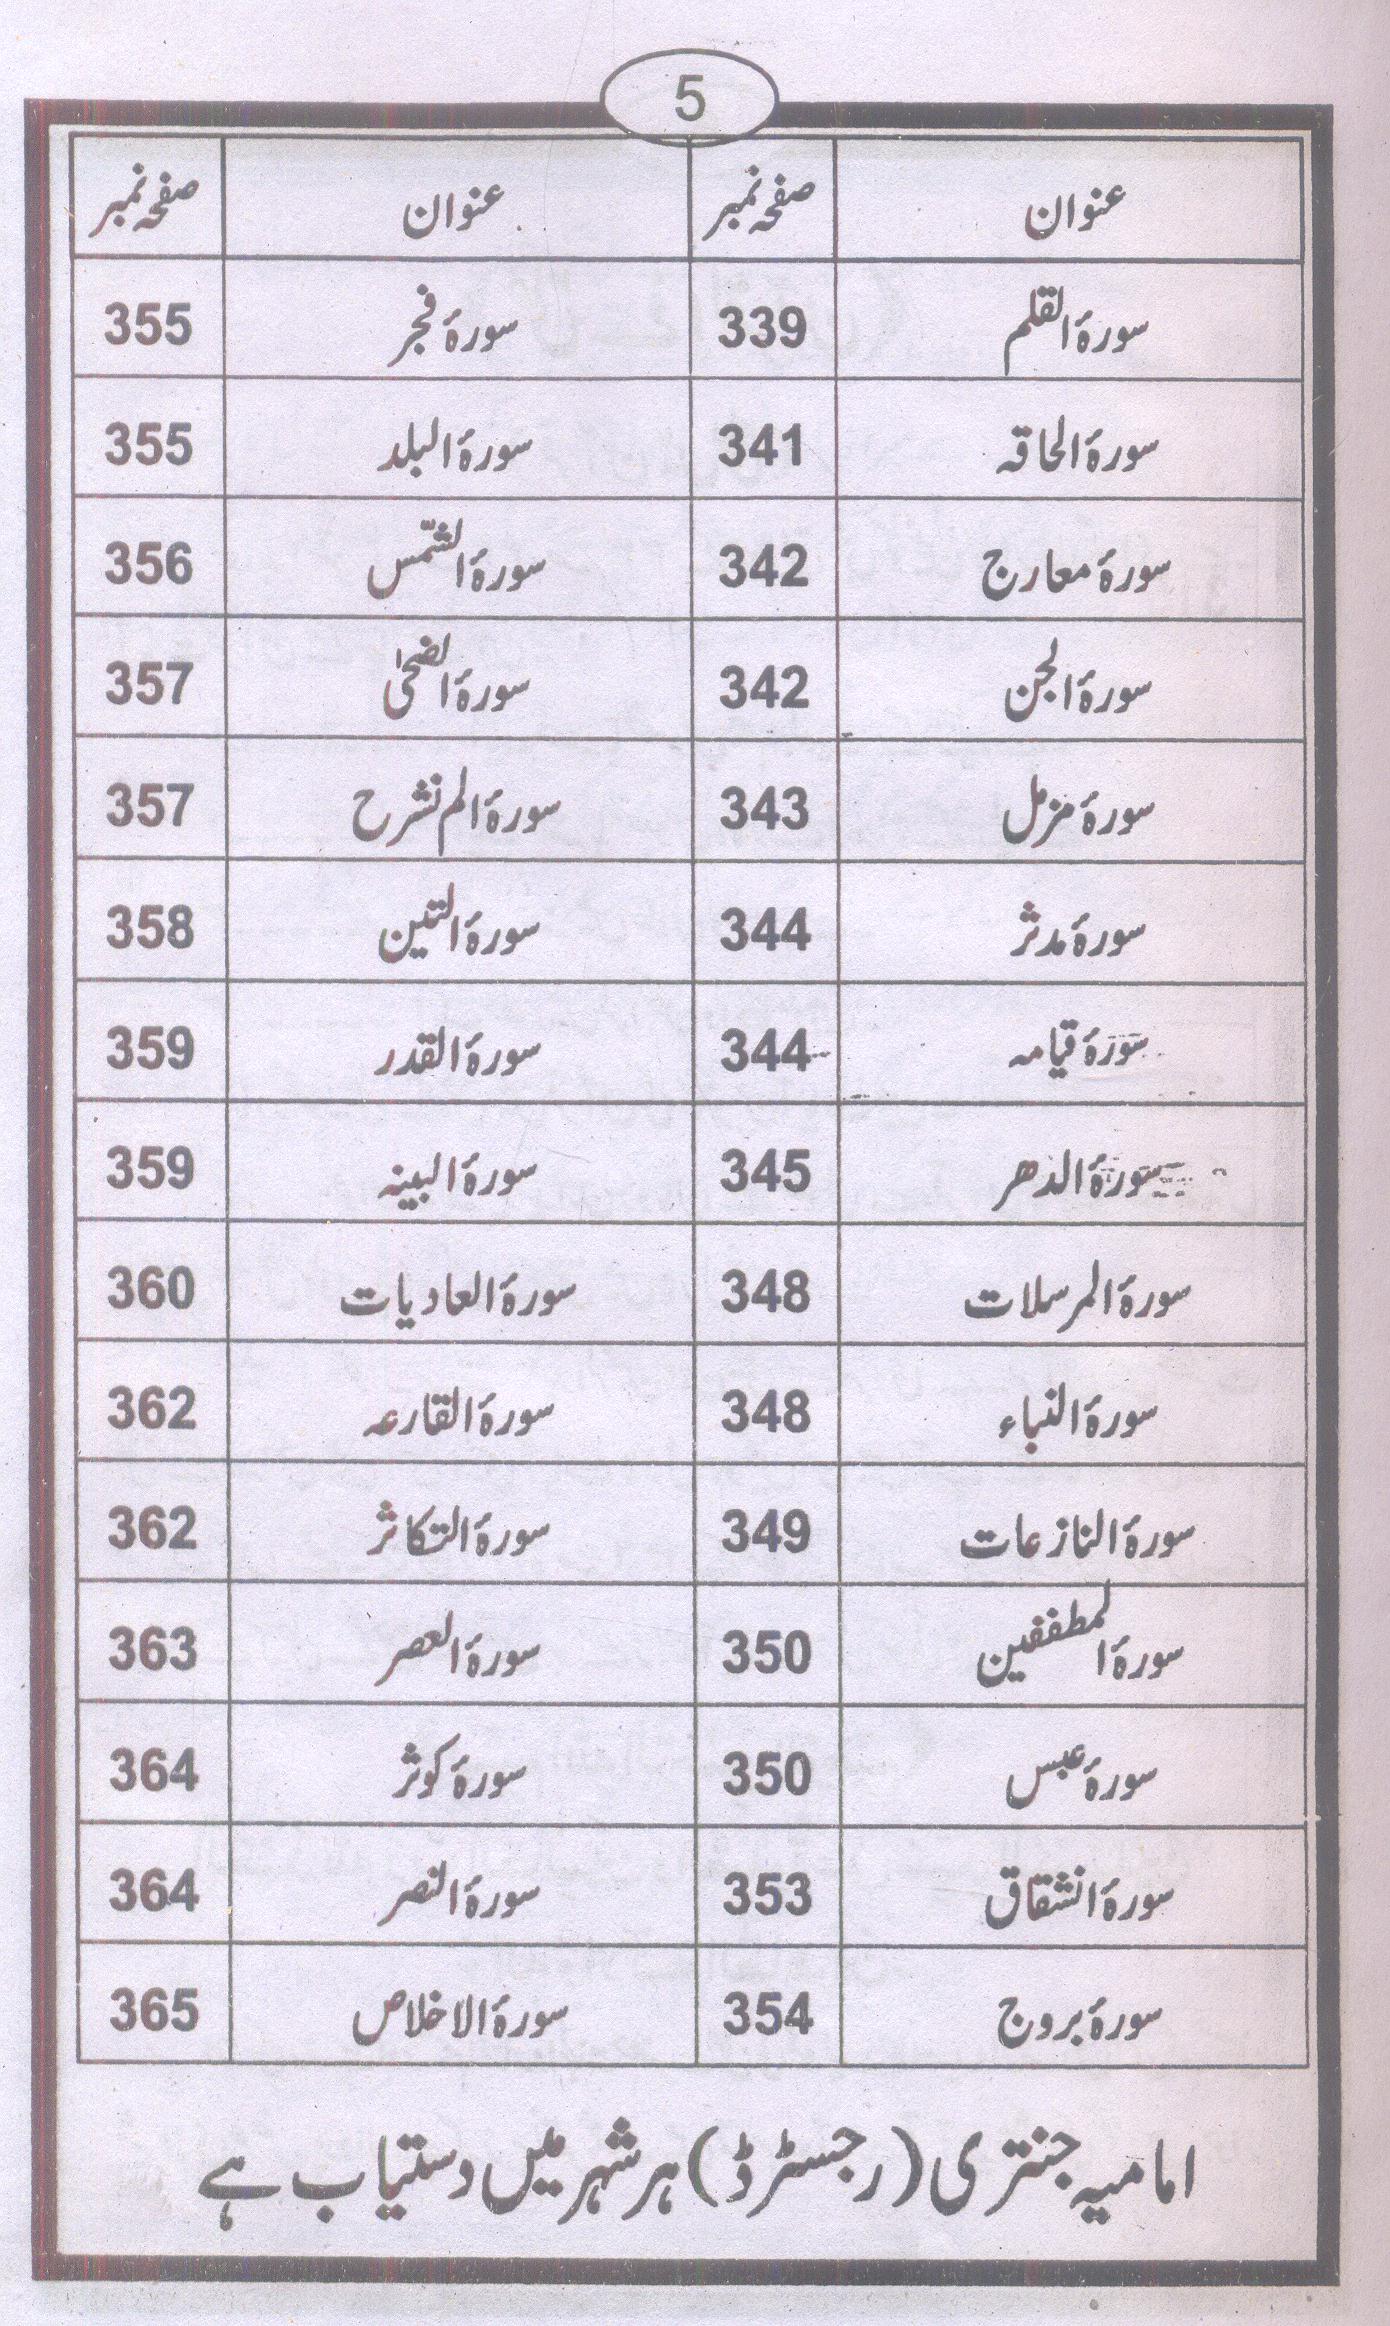 5
عنوان صفحہ نمبر عنوان صفحہ نمبر
سورۂ القلم 339 سورۂ فجر 355
سورۂ الحاقہ 341 سورۂ البلد 355
سورۂ معارج 342 سورۂ الشّمس 356
سورۂ الجن 342 سورۂ الضحیٰ 357
سورۂ مزمل 343 سورۂ الم نشرح 357
سورۂ مدثر 344 سورۂ التین 358
سورۂ قیامہ 344 سورۂ القدر 359
سورۂ الدھر 345 سورۂ البینہ 359
سورۂ المرسلات 348 سورۂ العادیات 360
سورۂ النباء 348 سورۂ القارعہ 362
سورۂ النازعات 349 سورۂ التکاثر 362
سورۂ المطففین 350 سورۂ العصر 363
سورۂ عبس 350 سورۂ کوثر 364
سورۂ انشقاق 353 سورۂ النصر 364
سورۂ بروج 354 سورۂ الاخلاص 365
امامیہ جنتری (رجسٹرڈ) ہر شہر میں دستیاب ہے